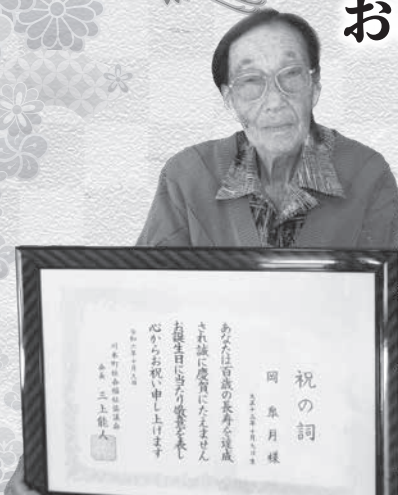 お
祝の詞
岡 様
大正十三年十月九日生
あなたは百歳の長寿を達成
され誠に慶賀にたえません
お誕生日に当たり微意を表し
心からお祝い申し上げます
令和六年十月九日
川本町社会福祉協議会
会長 三上能人